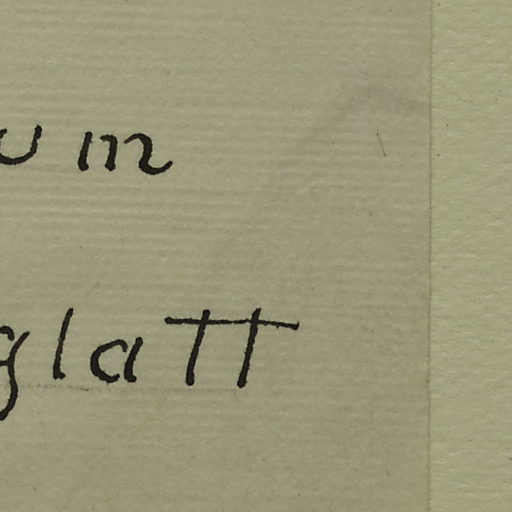 um
glatt